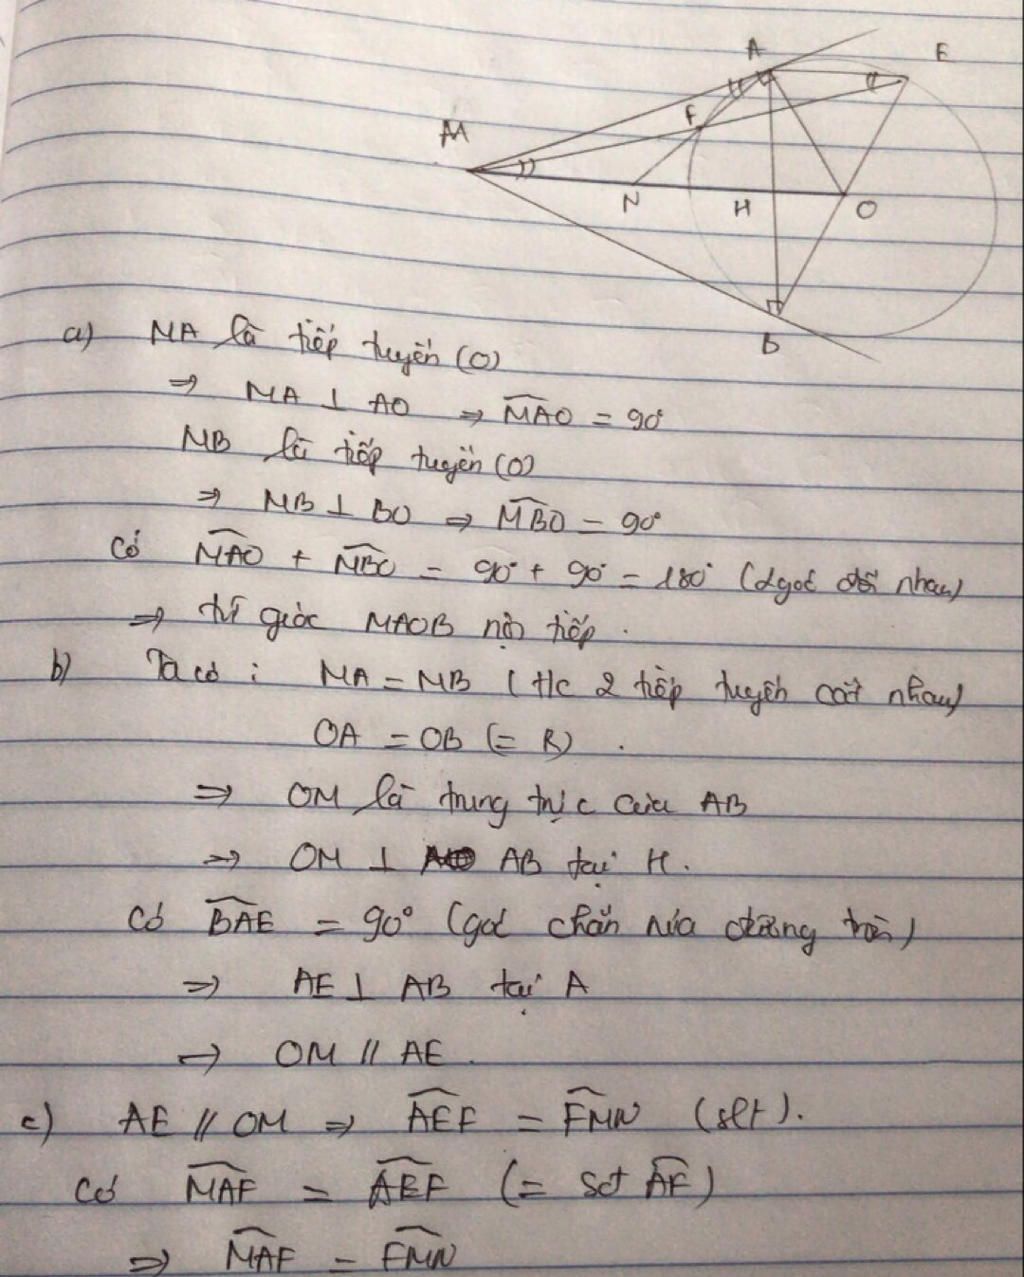 A
E
M
F
N
H
O
B
a) MA là tiếp tuyến (O)
⇒ MA ⊥ AO ⇒ \widehat{MAO} = 90°
MB là tiếp tuyến (O)
⇒ MB ⊥ BO ⇒ \widehat{MBO} = 90°
Có \widehat{MAO} + \widehat{MBO} = 90° + 90° = 180° (2 góc đối nhau)
⇒ tứ giác MAOB nội tiếp.
b) Ta có : MA = MB (t/c 2 tiếp tuyến cắt nhau)
OA = OB (= R).
⇒ OM là trung trực của AB
⇒ OM ⊥ AB tại H.
Có \widehat{BAE} = 90° (góc chắn nửa đường tròn)
⇒ AE ⊥ AB tại A
⇒ OM // AE.
c) AE // OM ⇒ \widehat{AEF} = \widehat{FMN} (slt).
Có \widehat{MAF} = \widehat{AEF} (= sđ \widehat{AF})
⇒ \widehat{MAF} = \widehat{FMN}